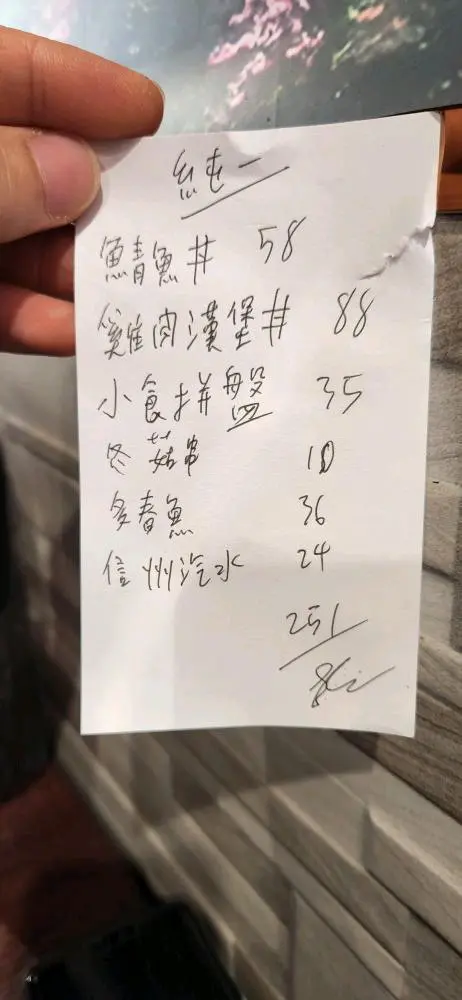 純一
鯖魚丼 58
雞肉漢堡丼 88
小食拼盤 35
冬菇串 10
多春魚 36
信州汽水 24
251